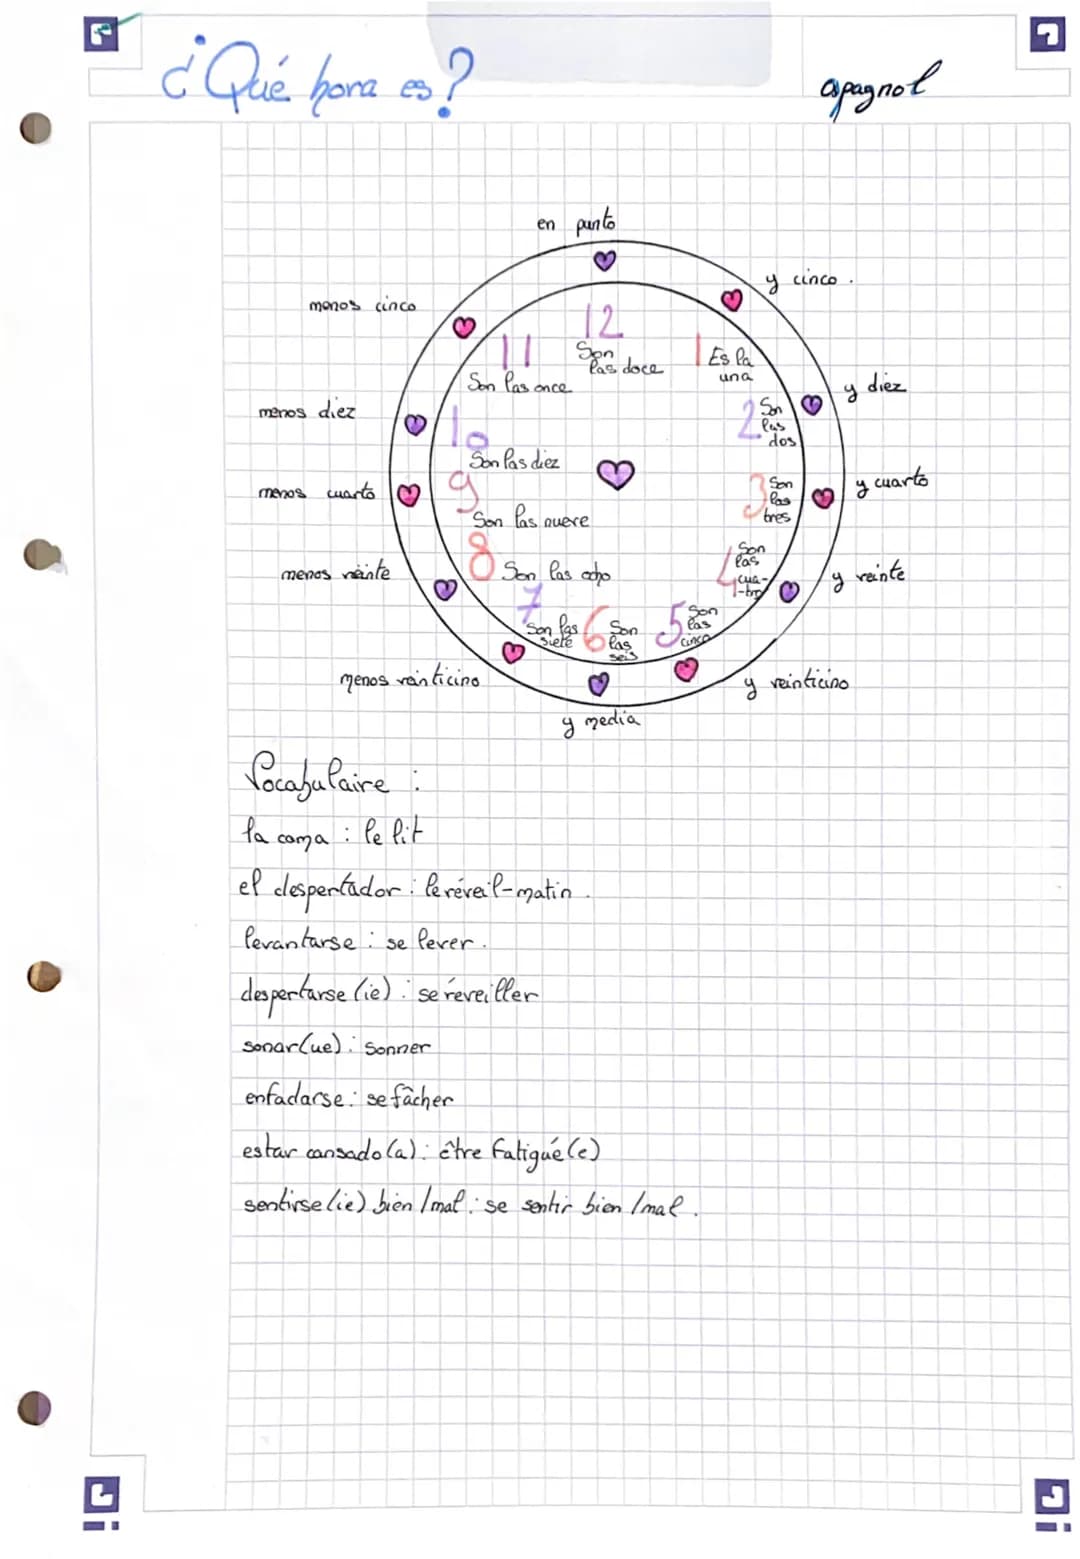 ¿Qué hora es?
espagnol
en punto
y cinco.
menos cinco
12
Son
las doce
11
Son las once
1 Es la
una
y diez
menos diez
2 Son
las
dos
10
Son las diez
y cuarto
menos cuarto
3 Son
las
tres
9
Son las nueve
y veinte
menos veinte
4 Son
las
cua-
-tro
8 Son las ocho
7
Son las
siete
6 Son
las
seis
5 Son
las
cinco
menos veinticinco
y veinticinco
y media
Vocabulaire :
la cama : le lit
el despertador : le réveil-matin.
levantarse : se lever.
despertarse (ie) : se réveiller
sonar (ue) : sonner
enfadarse : se fâcher
estar cansado (a) : être fatigué (e)
sentirse (ie) bien / mal : se sentir bien / mal.